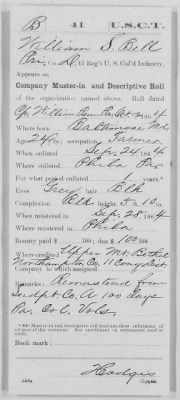 B 41 U.S.C.T.
William S. Bell
Pri, Co. D, 41 Reg't U. S. Col'd Infantry.
Appears on
Company Muster-in and Descriptive Roll
of the organization named above. Roll dated
Cp. William Penn Pa. Oct 2, 1864
Where born Baltimore Md
Age 24 y'rs; occupation Farmer
When enlisted Sep. 24, 1864
Where enlisted Phila Pa
For what period enlisted 1 years.
Eyes Grey; hair Blk
Complexion Blk; height 5 ft. 10 in.
When mustered in Sep. 28, 1864
Where mustered in Phila
Bounty paid $ 100; due $ 100 100
Where credited Upper Mt. Bethel
Northampton Co. 11 Cong. Dist.
Company to which assigned
Remarks: Remustered from
Indpt. Co. A 100 days
Pa. Col. Vols.
Book mark: